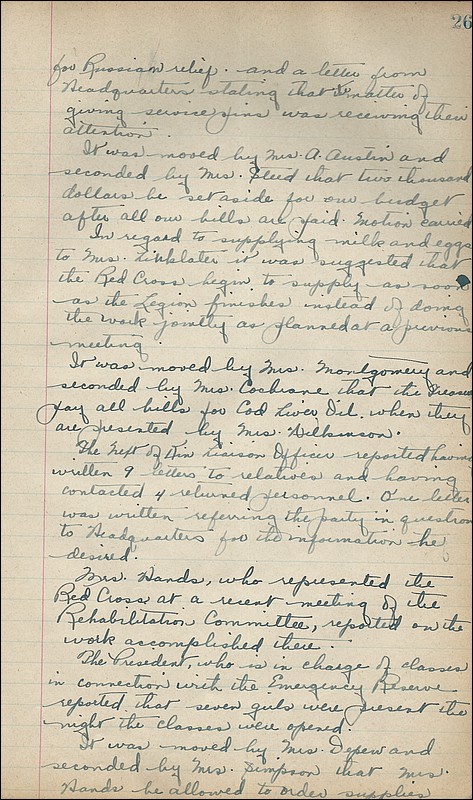 26
for Russian relief. and a letter from
Headquarters stating that matter of
giving service pins was receiving their
attention.
It was moved by Mrs. A. Austin and
seconded by Mrs. that two thousand
dollars be set aside for our budget
after all our bills are paid. Motion carried
In regard to supplying milk and eggs
to Mrs. Linklater it was suggested that
the Red Cross begin to supply as soon
as the Legion finishes instead of doing
the work jointly as planned at a previous
meeting
It was moved by Mrs. Montgomery and
seconded by Mrs. Cochrane that the
pay all bills for Cod Liver Oil. when they
are presented by Mrs. Wilkinson.
The Next of Kin Liaison Officer reported having
written 9 letters to relatives and having
contacted 4 returned personnel. One letter
was written referring the party in question
to Headquarters for the information he
desired.
Mrs. Hands, who represented the
Red Cross at a recent meeting of the
Rehabilitation Committee, reported on the
work accomplished there.
The President, who is in charge of classes
in connection with the Emergency Reserve
reported that seven girls were present the
night the classes were opened.
It was moved by Mrs. Depew and
seconded by Mrs. Simpson that Mrs.
Hands be allowed to order supplies